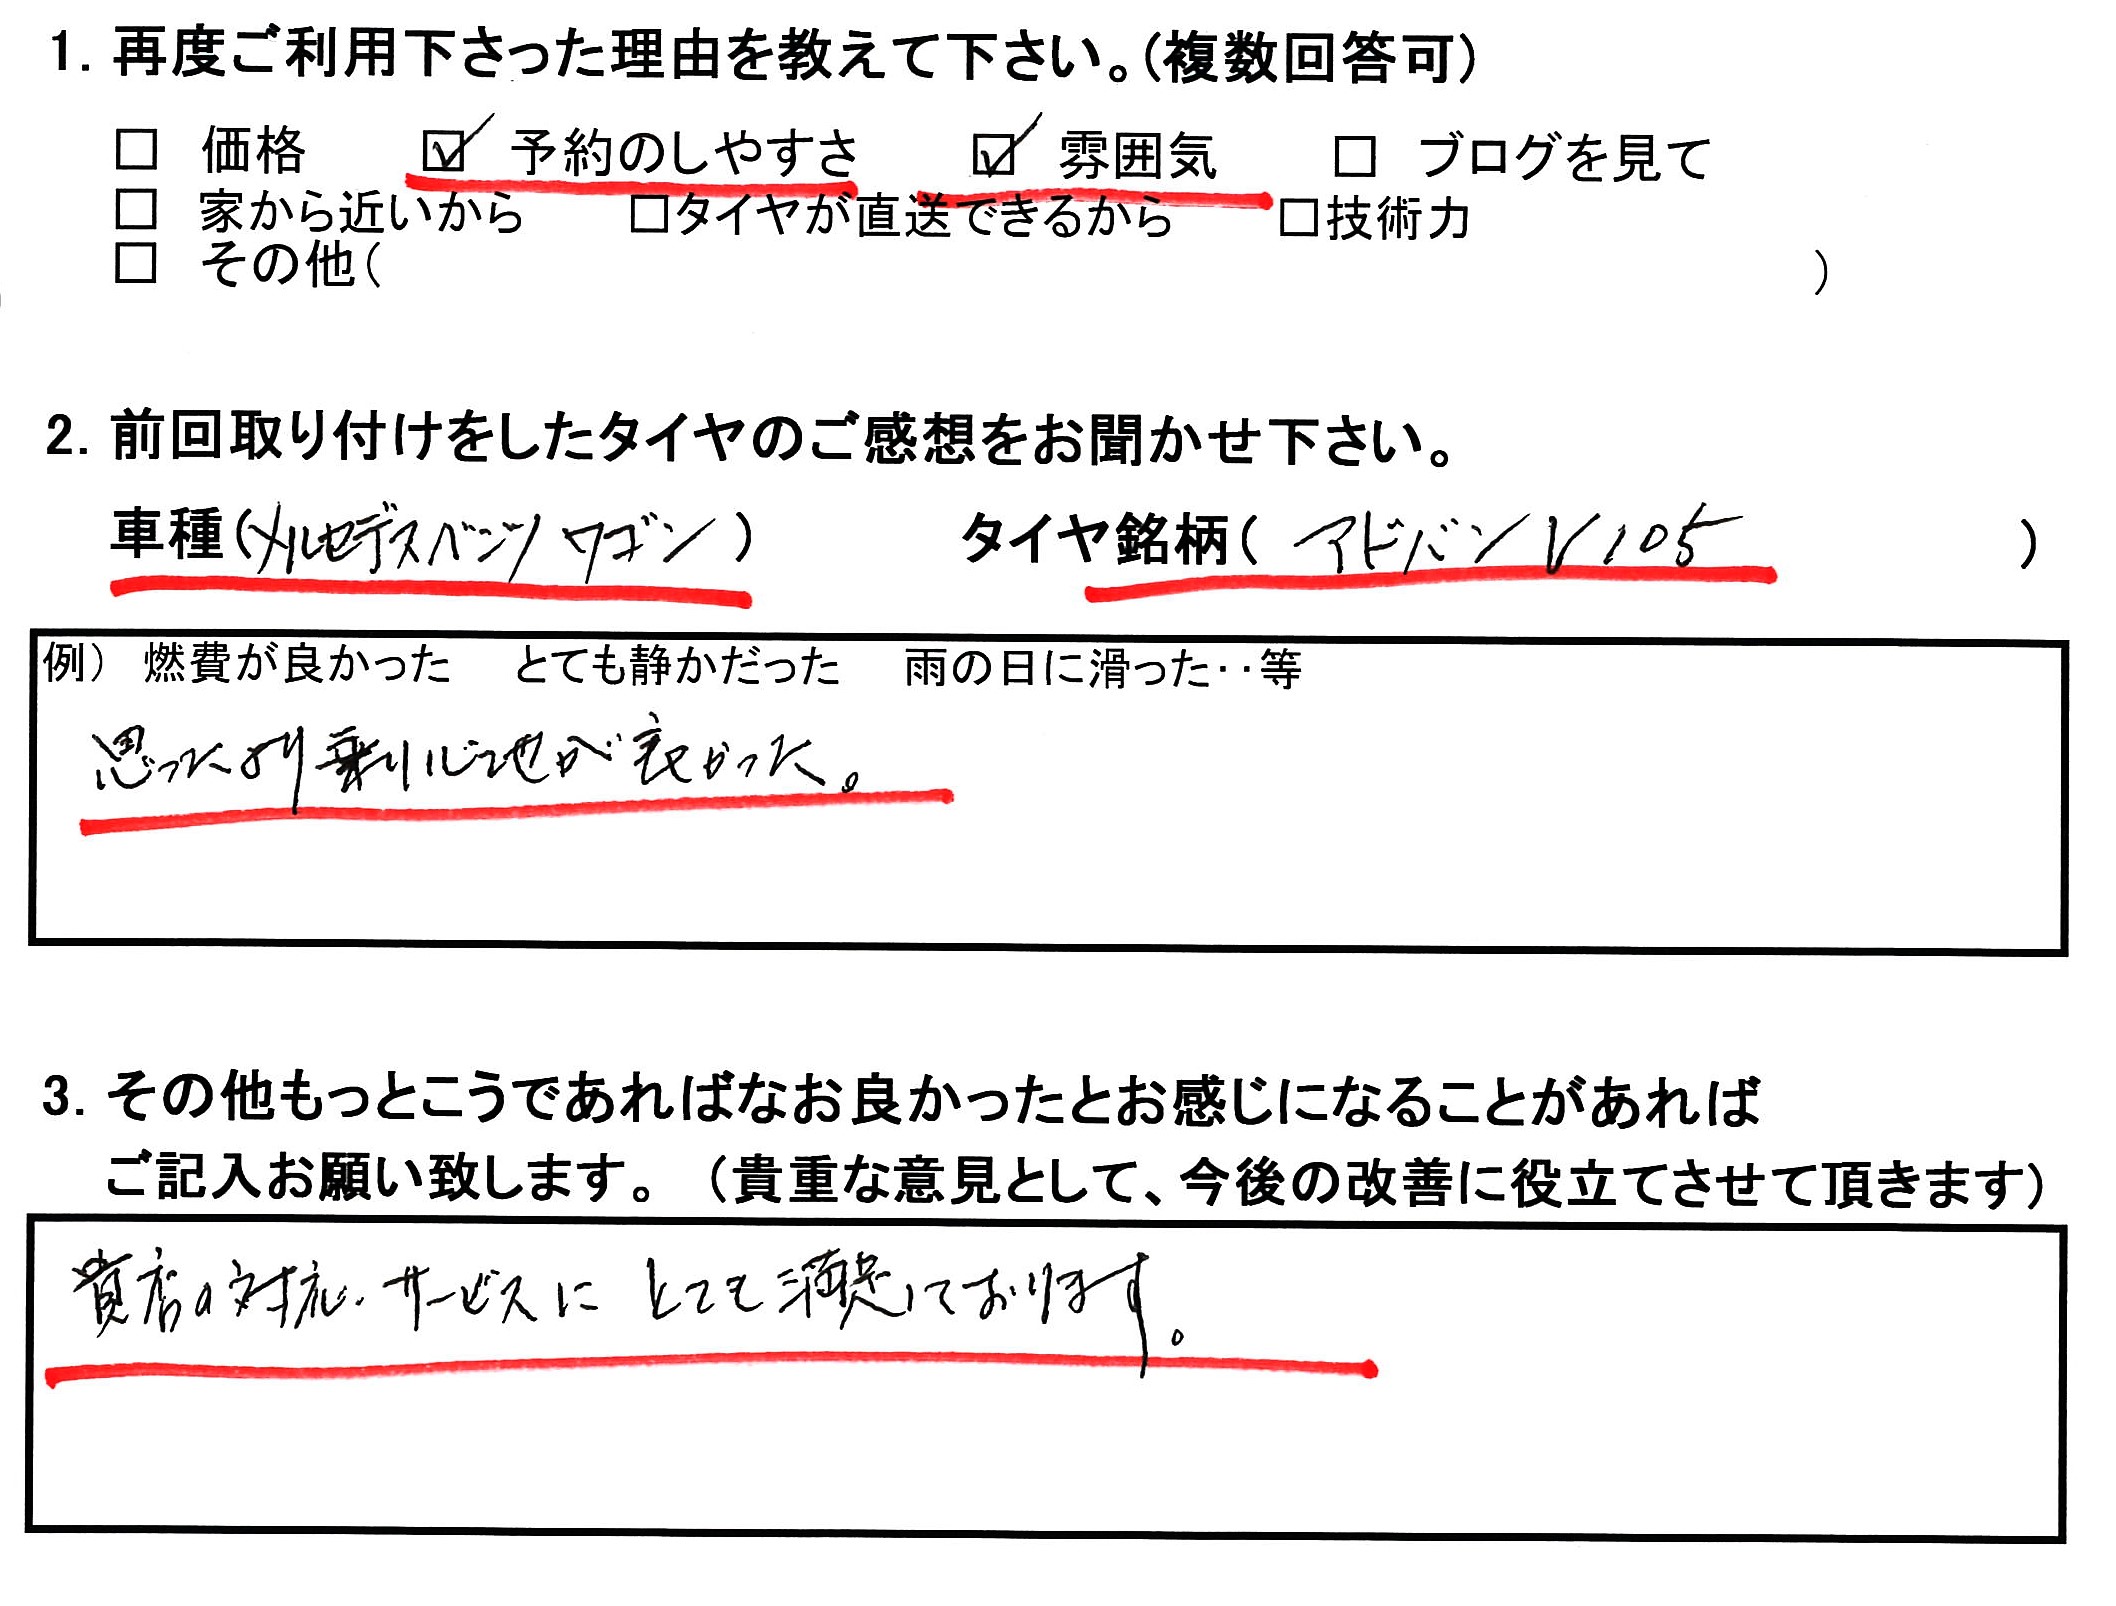 1. 再度ご利用下さった理由を教えて下さい。(複数回答可)
□ 価格 ☑ 予約のしやすさ ☑ 雰囲気 □ ブログを見て
□ 家から近いから □タイヤが直送できるから □技術力
□ その他( )
2. 前回取り付けをしたタイヤのご感想をお聞かせ下さい。
車種(メルセデスベンツ ワゴン) タイヤ銘柄( アドバン V105 )
例) 燃費が良かった とても静かだった 雨の日に滑った‥等
思ったより乗り心地が良かった。
3. その他もっとこうであればなお良かったとお感じになることがあれば
ご記入お願い致します。 (貴重な意見として、今後の改善に役立てさせて頂きます)
貴店の対応・サービスに とても満足しております。